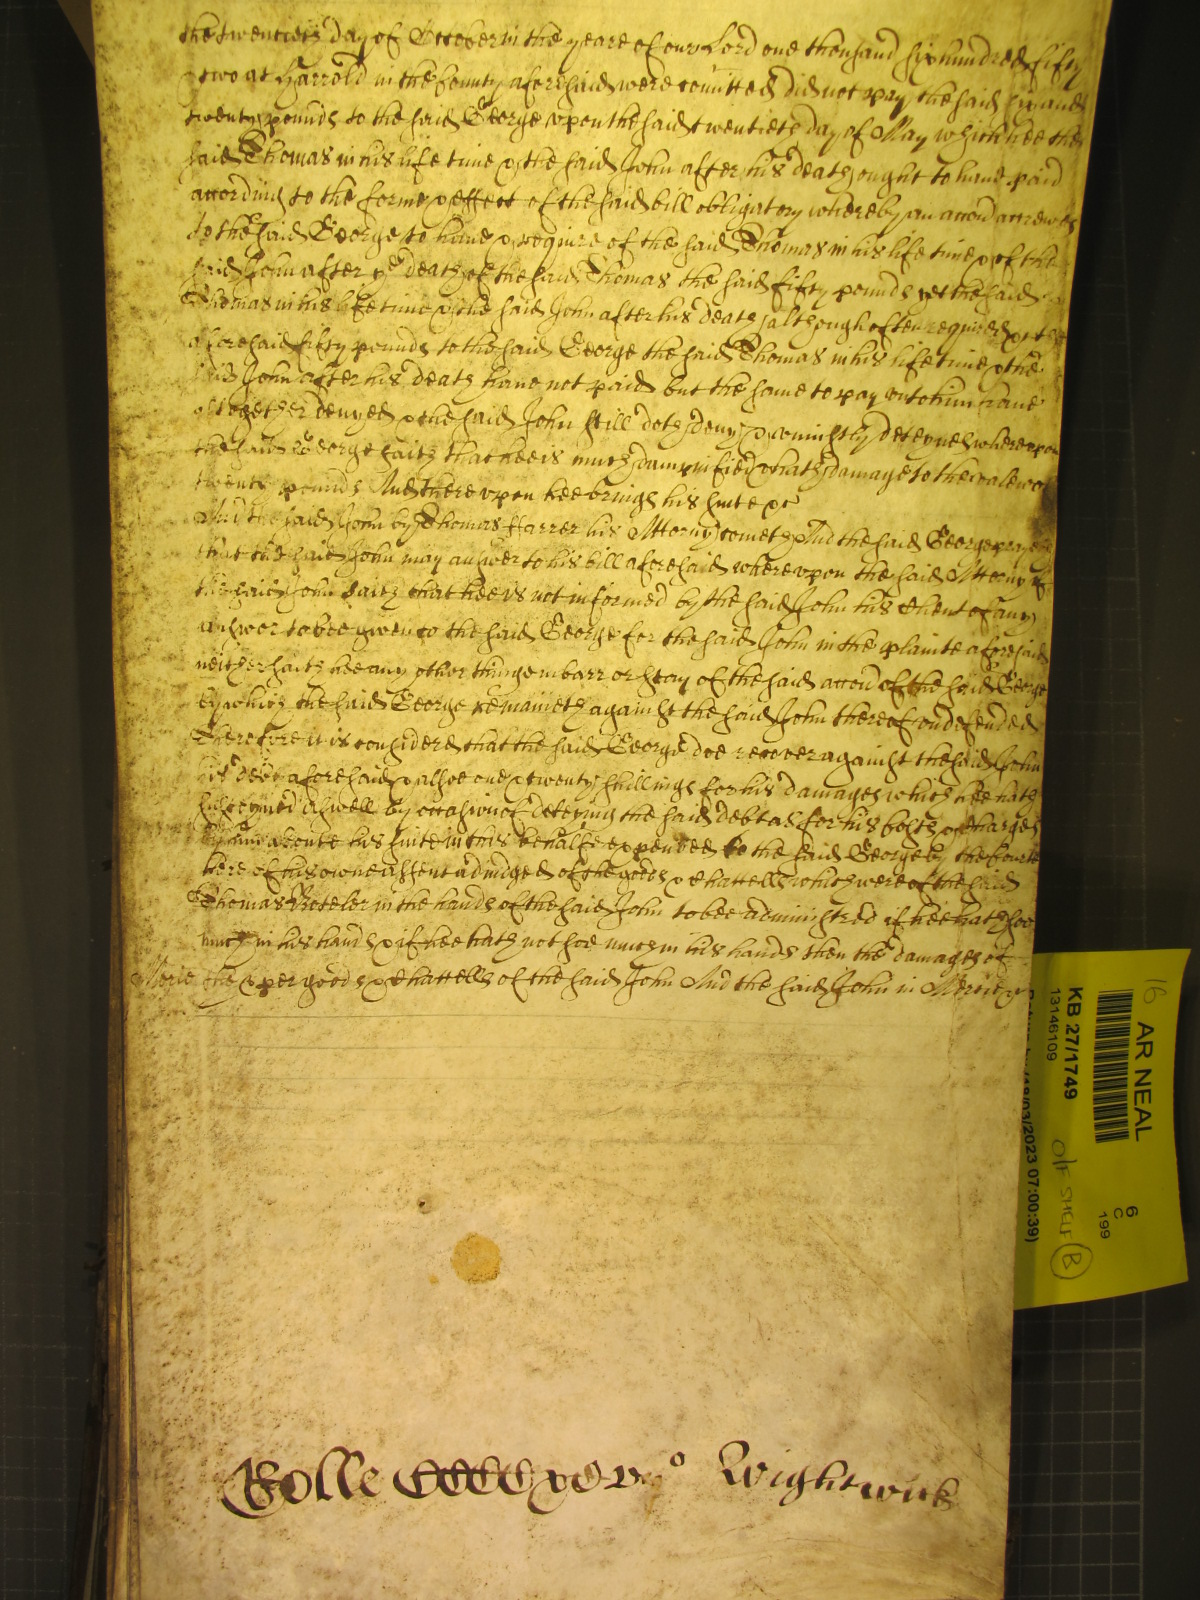 the twentieth day of October in the yeare of our Lord one thousand six hundred fifty
two at Harrold in the County aforesaid were comitted did not pay the said six and
twenty pounds to the said George upon the said twentieth day of May which hee the
said Thomas in his life time & the said John after his death ought to have paid
according to the forme & effect of the said bill obligatory whereby an accon accrewed
to the said George to have & require of the said Thomas in his life time & of the
said John after ye death of the said Thomas the said fifty pounds yet the said
Thomas in his life time & the said John after his death although often required &c the
aforesaid fifty pounds to the said George the said Thomas in his life time & the
said John after his death have not paid but the same to pay unto him have
altogether denyed & the said John still doth deny & uniustly deteynes whereupon
the said George saith that hee is much damnified & hath damage to the valew of
twenty pounds And thereupon hee brings his suite &c
And the said John by Thomas Farrer his Attorny cometh And the said George prayes
that the said John may answer to his bill aforesaid whereupon the said Attorny of
the said John saith that hee is not informed by the said John his Client of any
answer to bee given to the said George for the said John in the plainte aforesaid
neither saith hee any other thinge in barr or stay of the said accon of the said George
by which the said George remaineth against the said John thereof undefended
Therefore it is considered that the said George doe recover against the said John
his debt aforesaid & alsoe one & twenty shillings for his damages which hee hath
susteyned aswell by occasion of deteyning the said debt as for his costs & charges
by him about his suite in this behalfe expended to the said George by the Courte
here of his owne assent adiudged of the goods & Chattells which were of the said
Thomas Boteler in the hands of the said John to bee administred if hee hath soe
much in his hands & if hee hath not soe much in his hands then the damages of
Mercie the proper goods & Chattells of the said John And the said John in Mercie &c
Rolle CCCCxcv o Wightwick
16
AR NEAL
KB 27/1749
13146109
6
C
199
O/F SHELF B
(18/03/2023 07:00:39)